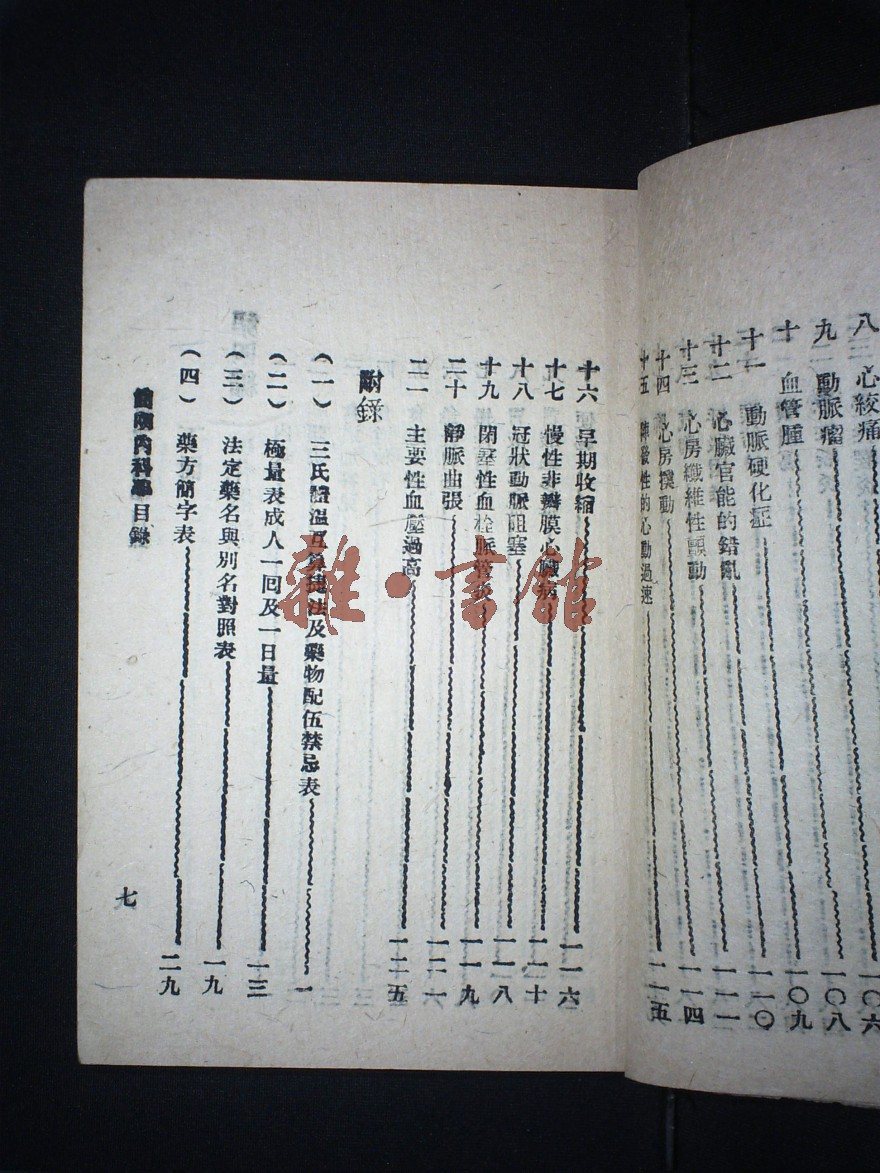 八 心絞痛 一〇六
九 動脈瘤 一〇八
十 血管腫 一〇九
十一 動脈硬化症 一一〇
十二 心臟官能的錯亂 一一一
十三 心房纖維性顫動 一一四
十四 心房撲動 一一五
十五 陣發性的心動過速
十六 早期收縮 一一六
十七 慢性非瓣膜心臟病 一一十
十八 冠狀動脈阻塞 一一八
十九 閉塞性血栓脈管炎 一一九
二十 靜脈曲張 一二一
二一 主要性血壓過高 一二五
附錄
(一) 三氏體溫互算捷法及藥物配伍禁忌表 一
(二) 極量表成人一回及一日量 一三
(三) 法定藥名與別名對照表 一九
(四) 藥方簡字表 二九
內科學目錄
七
雜·書館